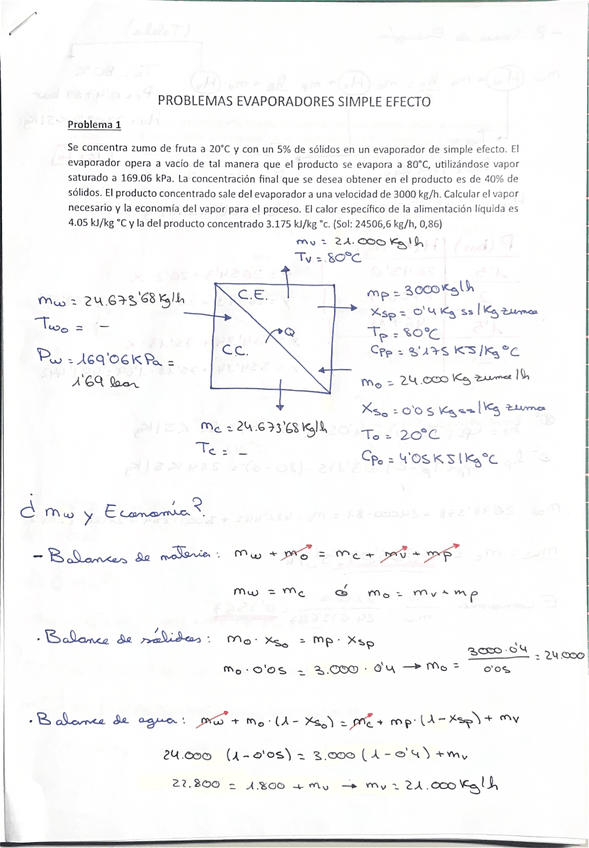 PROBLEMAS EVAPORADORES SIMPLE EFECTO
Problema 1
Se concentra zumo de fruta a 20°C y con un 5% de sólidos en un evaporador de simple efecto. El
evaporador opera a vacío de tal manera que el producto se evapora a 80°C, utilizándose vapor
saturado a 169.06 kPa. La concentración final que se desea obtener en el producto es de 40% de
sólidos. El producto concentrado sale del evaporador a una velocidad de 3000 kg/h. Calcular el vapor
necesario y la economía del vapor para el proceso. El calor específico de la alimentación líquida es
4.05 kJ/kg °C y la del producto concentrado 3.175 kJ/kg °c. (Sol: 24506,6 kg/h, 0,86)
mv = 21.000 Kg/h
Tv = 80°C
mw = 24.673'68 Kg/h
Two = -
Pw = 169'06 KPa =
1'69 bar
C.E.
Q
C.C.
mp = 3000 Kg/h
Xsp = 0'4 Kg ss/Kg zumo
Tp = 80°C
Cpp = 3'175 KJ/Kg°C
mo = 24.000 Kg zumo/h
Xso = 0'05 Kg ss/Kg zumo
To = 20°C
Cpo = 4'05 KJ/Kg°C
mc = 24.673'68 Kg/h
Tc = -
¿ mw y Economía?
- Balances de materia: mw + mo = mc + mv + mp
mw = mc ó mo = mv + mp
· Balance de sólidos: mo · Xso = mp · Xsp
mo · 0'05 = 3.000 · 0'4 → mo = 3000·0'4 / 0'05 = 24.000
· Balance de agua: mw + mo · (1 - Xso) = mc + mp · (1 - Xsp) + mv
24.000 (1 - 0'05) = 3.000 (1 - 0'4) + mv
22.800 = 1.800 + mv → mv = 21.000 Kg/h